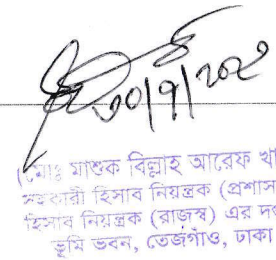 ৩০|৭|২০২
(মোঃ মাশুক বিল্লাহ আরেফ খা
সহকারী হিসাব নিয়ন্ত্রক (প্রশাস
হিসাব নিয়ন্ত্রক (রাজস্ব) এর দপ
ভূমি ভবন, তেজগাঁও, ঢাকা